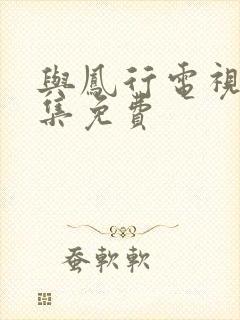 與鳳行電視
集免費
蚕軟軟